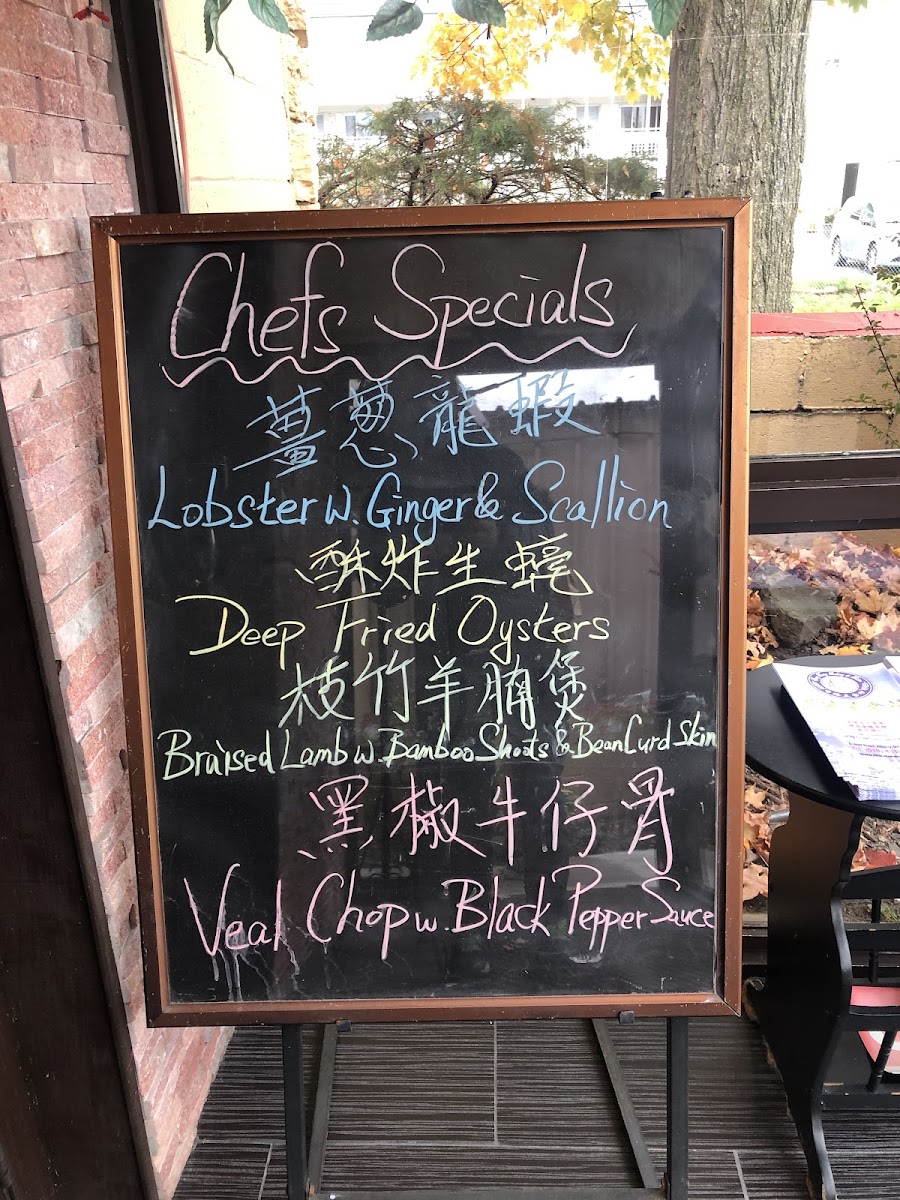 Chefs Specials
薑蔥龍蝦
Lobster w. Ginger & Scallion
酥炸生蠔
Deep Fried Oysters
枝竹羊腩煲
Braised Lamb w. Bamboo Shoots & Bean Curd Skin
黑椒牛仔骨
Veal Chop w. Black Pepper Sauce